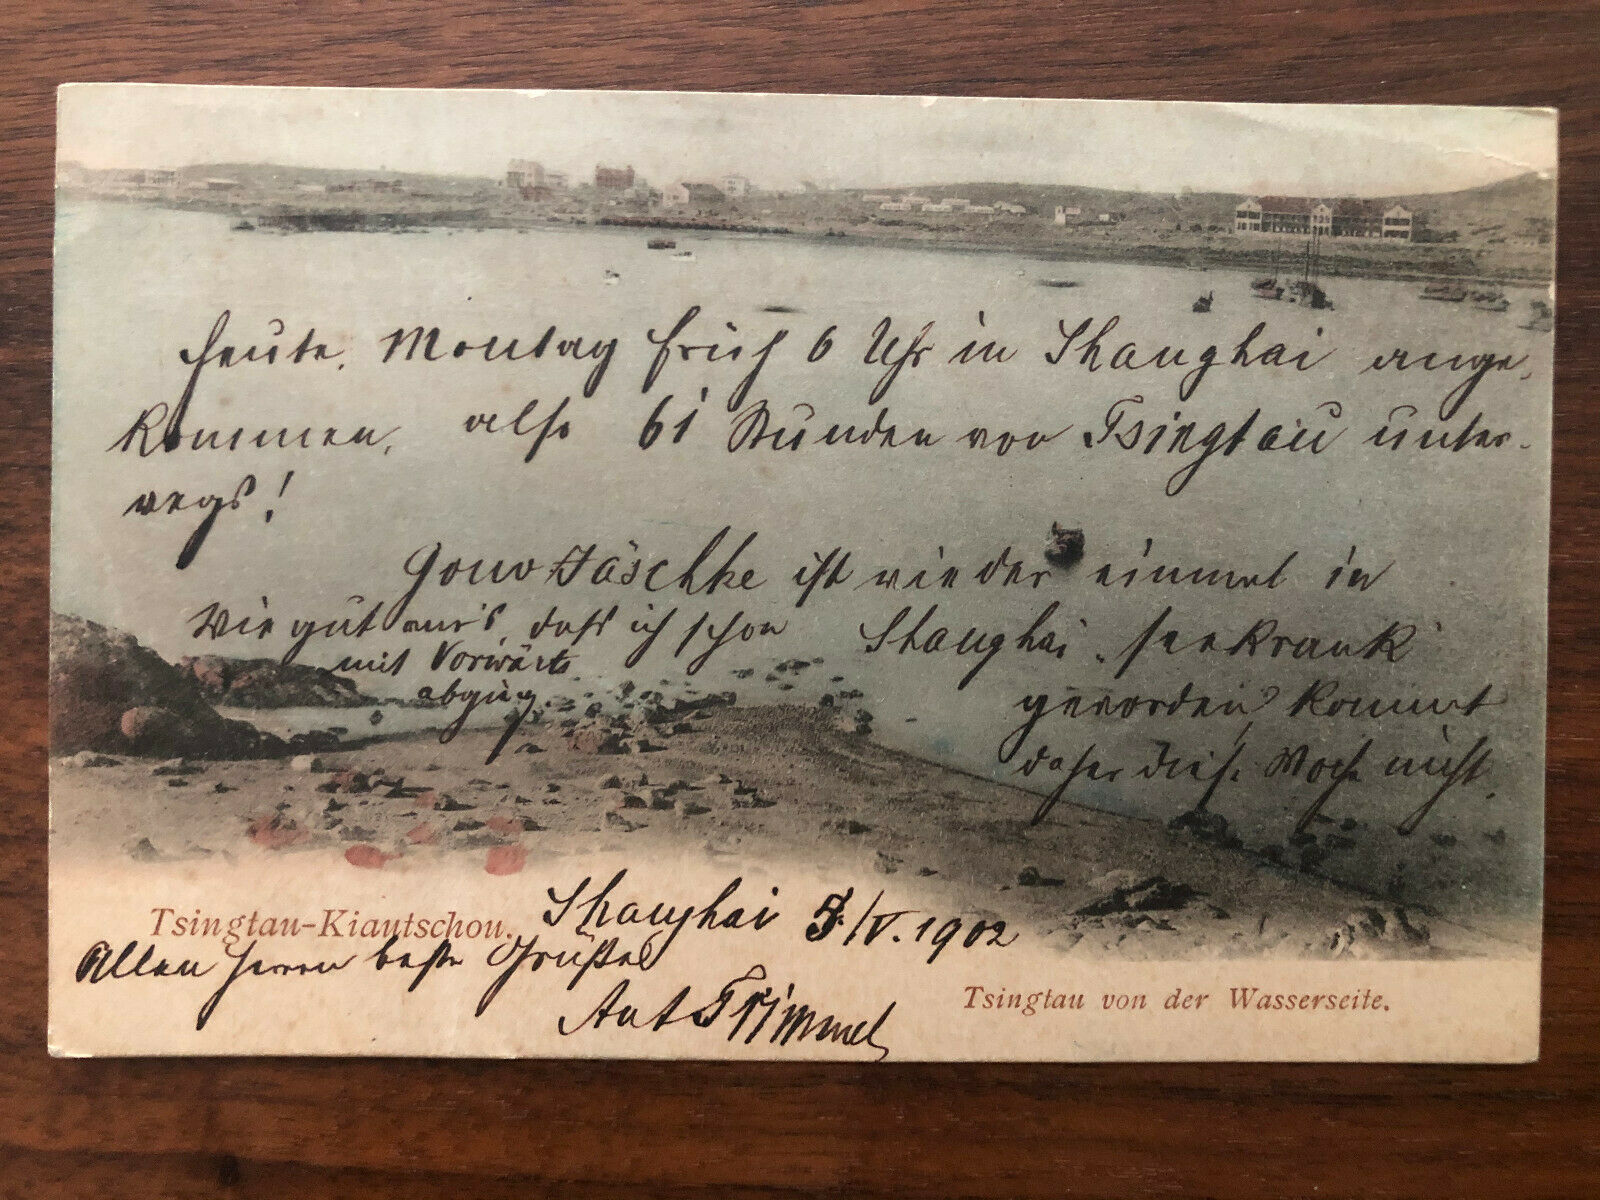 Heute, Montag früh 6 Uhr in Shanghai ange-
kommen, also 61 Stunden von Tsingtau unter-
wegs!
Gouv Jäschke ist wieder einmal in
Shanghai seekrank
geworden, kommt
daher diese Woche nicht.
Wie gut war's, dass ich schon
mit Vorwärts
abging.
Tsingtau-Kiautschou.
Shanghai 5/V. 1902
Allen Herren beste Grüße
Ant
Tsingtau von der Wasserseite.